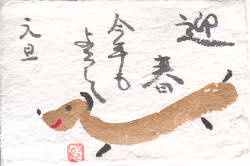 迎
春
今年も
よろしく
元旦